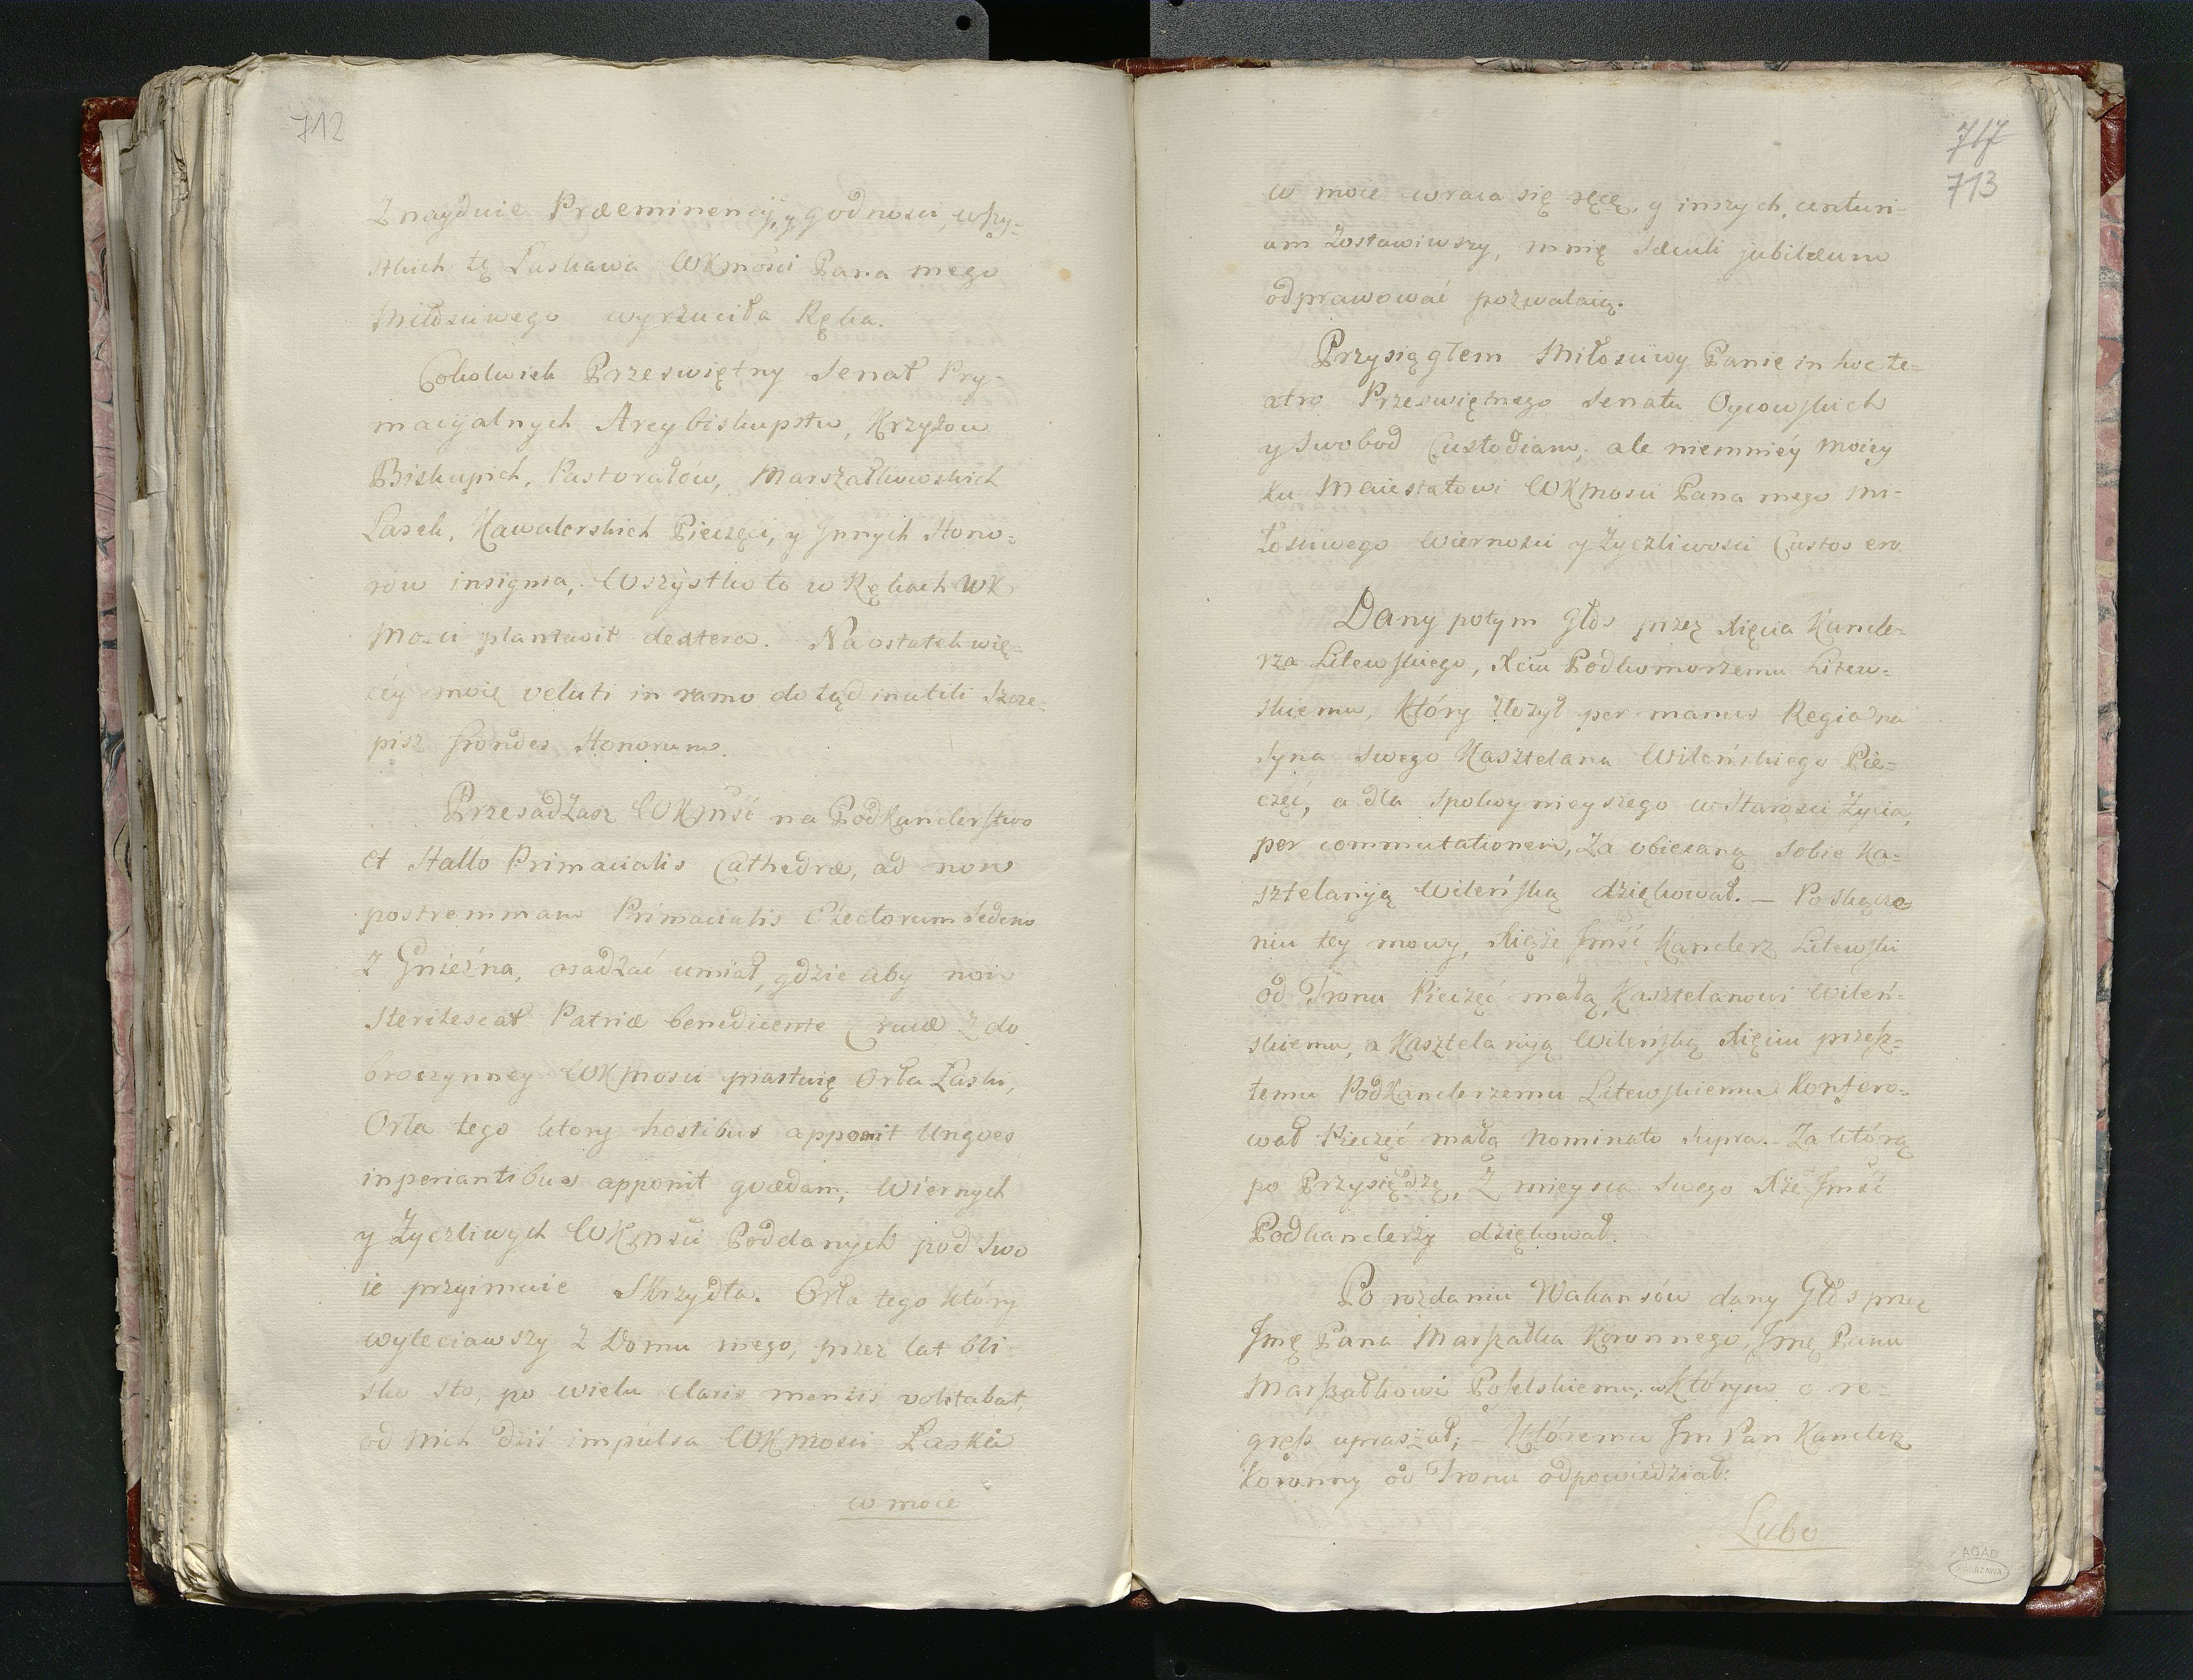 712
Znayduie Præeminencij, y godnosci, wszy=
stkich tę Laskawa WKmości Pana mego
Miłosciwego wyrzuciła Ręka.
Cokolwiek Przeswiętny Senat Pry-
macyalnych Arcybiskupstw, Krzyżow
Biskupich, Pastorałów, Marszałkowskich
Lasek, Kawalerskich Pieczęci, y Innych Hono=
rów insignia, Wszystko to w Rękach WK
Mosci plantavit dextera. Na ostatek wię=
céy moię veluti in ramo dotąd inutili Szcze=
pisz frondes Honorum.
Przesadzasz WKmść na Podkanclerstwo
et Stallo Primacialis Cathedræ, ad non
postremmam Primacialis Electorum Sedem
Z Gniezna, osadzać umiał, gdzie aby non
sterilescat Patriæ benedicente z do
broczynney WKmosci piastuię Orła Łaski,
Orła tego ktory hostibus apponit Ungves
inperiantibus apponit gvædam, Wiernych
y Życzliwych WKmści Poddanych pod Swo
ie przyimuie Skrzydła. Orła tego który
wyleciawszy z Domu mego, przez lat bli=
sko Sto, po wielu claris mensis volitabat,
od nich dziś impulsa WKmosci Laskå
w moie
717
713
w moie wraca się ręcę, y inszych, centuri=
am Zostawiwszy, mnię Sæculi jubilæum
odprawować pozwalaią.
Przysiągłem Miłosciwy Panie in hoc te=
atro Przeswiętnego Senatu Oycowskich
y Swobod Custodiam, ale niemniéy moiey
ku Maiestatowi WKmosci Pana mego mi=
łosciwego Wiernosci y Życzliwosci Custos ero
Dany potym Głos przez Xięcia Kancle=
rza Litewskiego, Xciu Podkomorzemu Litew=
skiemu, Który złożył per manus Regia na
Syna Swego Kasztelana Wileńskiego Pie=
częć, a dla Spokoynieyszego w Starosci Życia,
per commutationem, Za obiecaną Sobie Ka=
sztelaniją Wileńską dziękował. — Po skącze
niu tey mowy, Xiąże Jmść Kanclerz Litewski
od Tronu Pieczęć małą, Kasztelanowi Wileń=
skiemu, a Kasztelaniją Wileńską Xięciu przesz=
łemu Podkanclerzemu Litewskiemu Konfero=
wał Pieczęć małą Nominato Supra. Za którą
po Przysiędzę, Z mieysca Swego Xże Jmść
Podkanclerzy dziękował.
Po rozdaniu Wakansów dany Głos przez
Jmę Pana Marszałka Koronnego, Jmę Panu
Marszałkowi Poselskiemu, w Którym o re=
gress upraszał; Któremu Jm Pan Kanclerz
Koronny od Tronu odpowiedział:
Lubo
AGAD
WARSZAWA